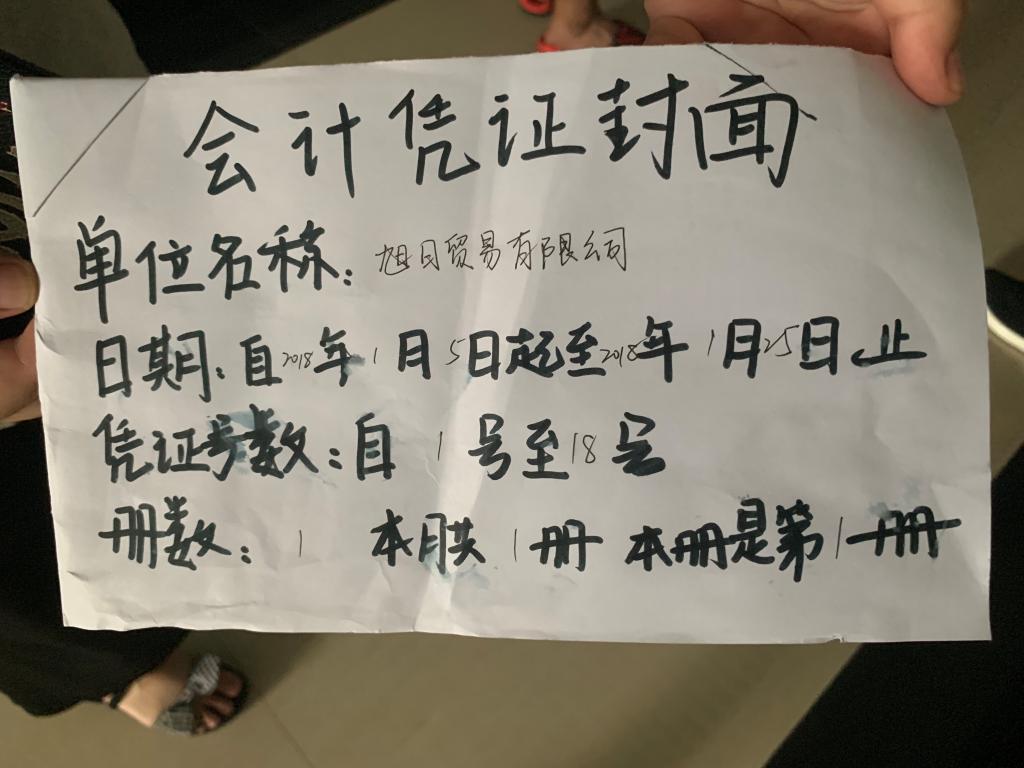 会计凭证封面
单位名称：旭日贸易有限公司
日期：自2018年1月5日起至2018年1月25日止
凭证号数：自1号至18号
册数：1 本月共1册 本册是第1册